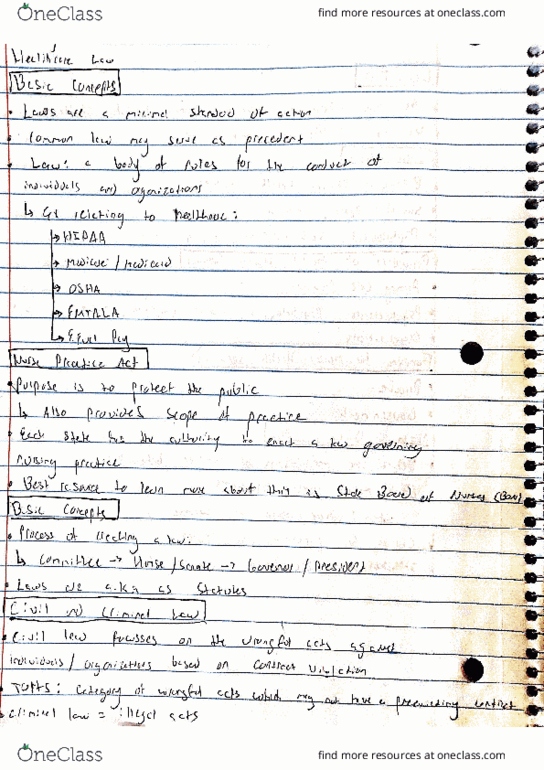 OneClass
find more resources at oneclass.com
Healthcare Law
Basic Concepts
• Laws are a minimal standard of action
• Common law may serve as precedent
• Law: a body of rules for the conduct of
individuals and organizations
↳ Ex relating to healthcare:
→ HIPAA
→ Medicare / Medicaid
→ OSHA
→ EMTALA
→ Equal Pay
Nurse Practice Act
• Purpose is to protect the public
↳ Also provides scope of practice
• Each state has the authority to enact a law governing
nursing practice
• Best resource to learn more about this is State Board of Nurses (BON)
Basic Concepts
• Process of creating a law:
↳ Committee → House / Senate → Governor / President
• Laws are a.k.a as statutes
Civil and Criminal Law
• Civil law focusses on the wrongful acts against
individuals / organizations based on contract violation
• TORTS: category of wrongful acts which may not have a preexisting contract
• Criminal law = illegal acts
OneClass
find more resources at oneclass.com